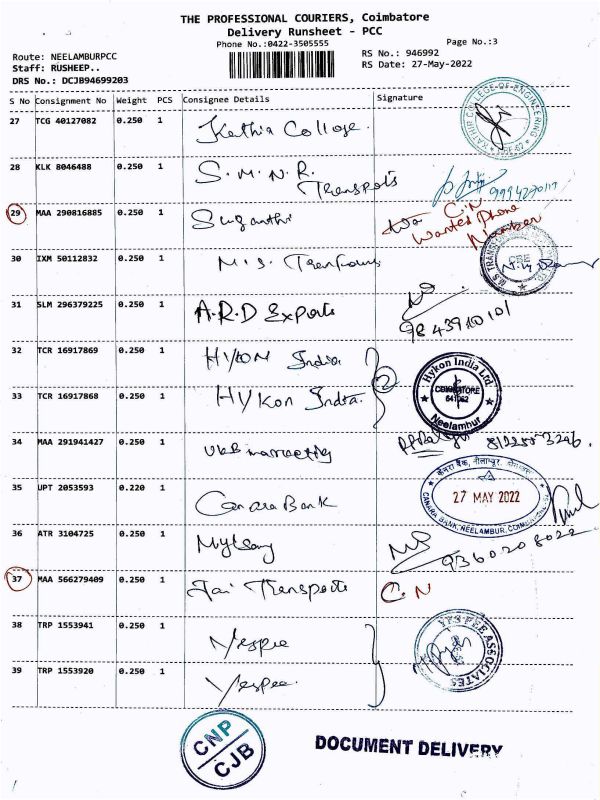 THE PROFESSIONAL COURIERS, Coimbatore
Delivery Runsheet - PCC
Phone No.:0422-3505555
Page No.:3
Route: NEELAMBURPCC
RS No.: 946992
Staff: RUSHEEP..
RS Date: 27-May-2022
DRS No.: DCJB94699203
S No Consignment No Weight PCS Consignee Details Signature
27 TCG 40127082 0.250 1 Kathir College.
28 KLK 8046488 0.250 1 S.M.N.R. Transports
29 MAA 290816885 0.250 1 Suganthi C.N Wanted Phone Number
30 IXM 50112832 0.250 1 M.S.
31 SLM 296379225 0.250 1 A.R.D Exports 9843910101
32 TCR 16917869 0.250 1 HYKON India
2
33 TCR 16917868 0.250 1 HYKON India.
Hykon India Ltd
COIMBATORE
641062
Neelambur
34 MAA 291941427 0.250 1 VKB marketing
35 UPT 2053593 0.220 1 Canara Bank
27 MAY 2022
CANARA BANK, NEELAMBUR, COIMBATORE
36 ATR 3104725 0.250 1 9360208022
37 MAA 566279409 0.250 1 Jai Transports C.N
38 TRP 1553941 0.250 1 Yespee
39 TRP 1553920 0.250 1 Yespee.
CNP
CJB
DOCUMENT DELIVERY